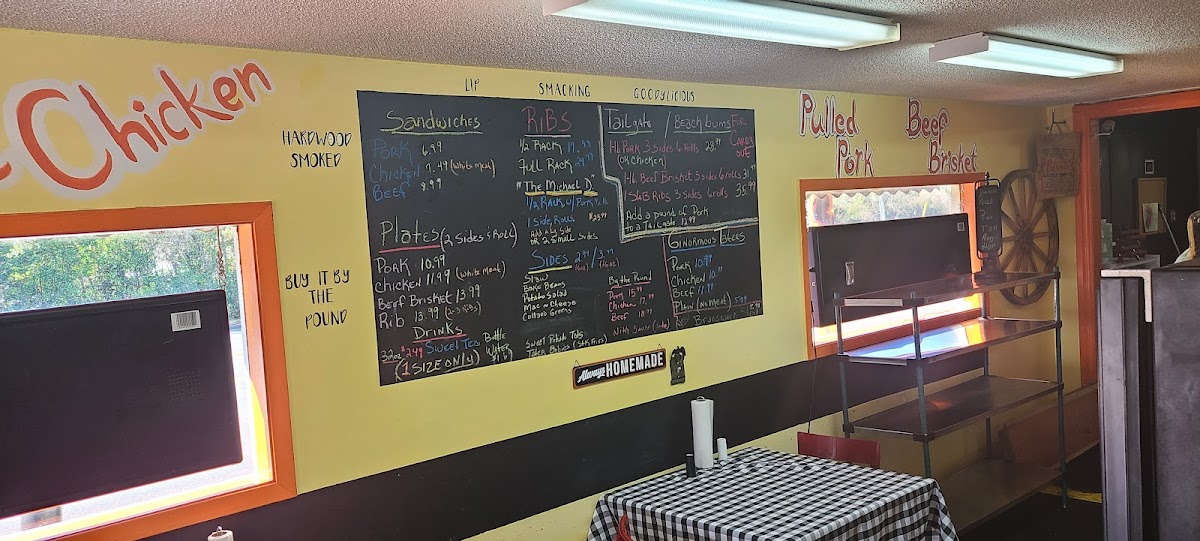 Chicken
LIP SMACKING GOODYLICIOUS
HARDWOOD
SMOKED
BUY IT BY
THE
POUND
Sandwiches
Pork 6.99
Chicken 7.49 (white meat)
Beef 8.99
Plates (2 Sides & Roll)
Pork 10.99
Chicken 11.99 (white meat)
Beef Brisket 13.99
Rib 13.99 (2-3 Ribs)
Drinks
32oz $2.49 Sweet Tea
(1 SIZE ONLY)
Bottle
Water
RIBS
1/2 RACK
Full RACK
"The Michael D."
1/2 RACK w/ Pork
1 Side, Rolls
or 2 Small Sides
SIDES 2.99/
Stew
Baked Beans
Potato Salad
Mac n Cheese
Collard Greens
Sweet Potato Tots
By the Pound
Pork 15.99
Chicken 17.99
Beef 18.99
Tailgate / Beach bums
FOR
CARRY
OUT
1 lb Pork 3 Sides 6 Rolls 28.99
(or Chicken)
1 lb Beef Brisket 3 sides 6 rolls
Slab Ribs 3 sides 6 rolls 35.99
Add a pound of Pork
to a Tailgate
Ginormous Taters
Pork 10.99
Chicken 10.99
Beef 11.99
Plain (No meat) 5.99
Brunswick
Always HOMEMADE
Pulled
Pork
Beef
Brisket